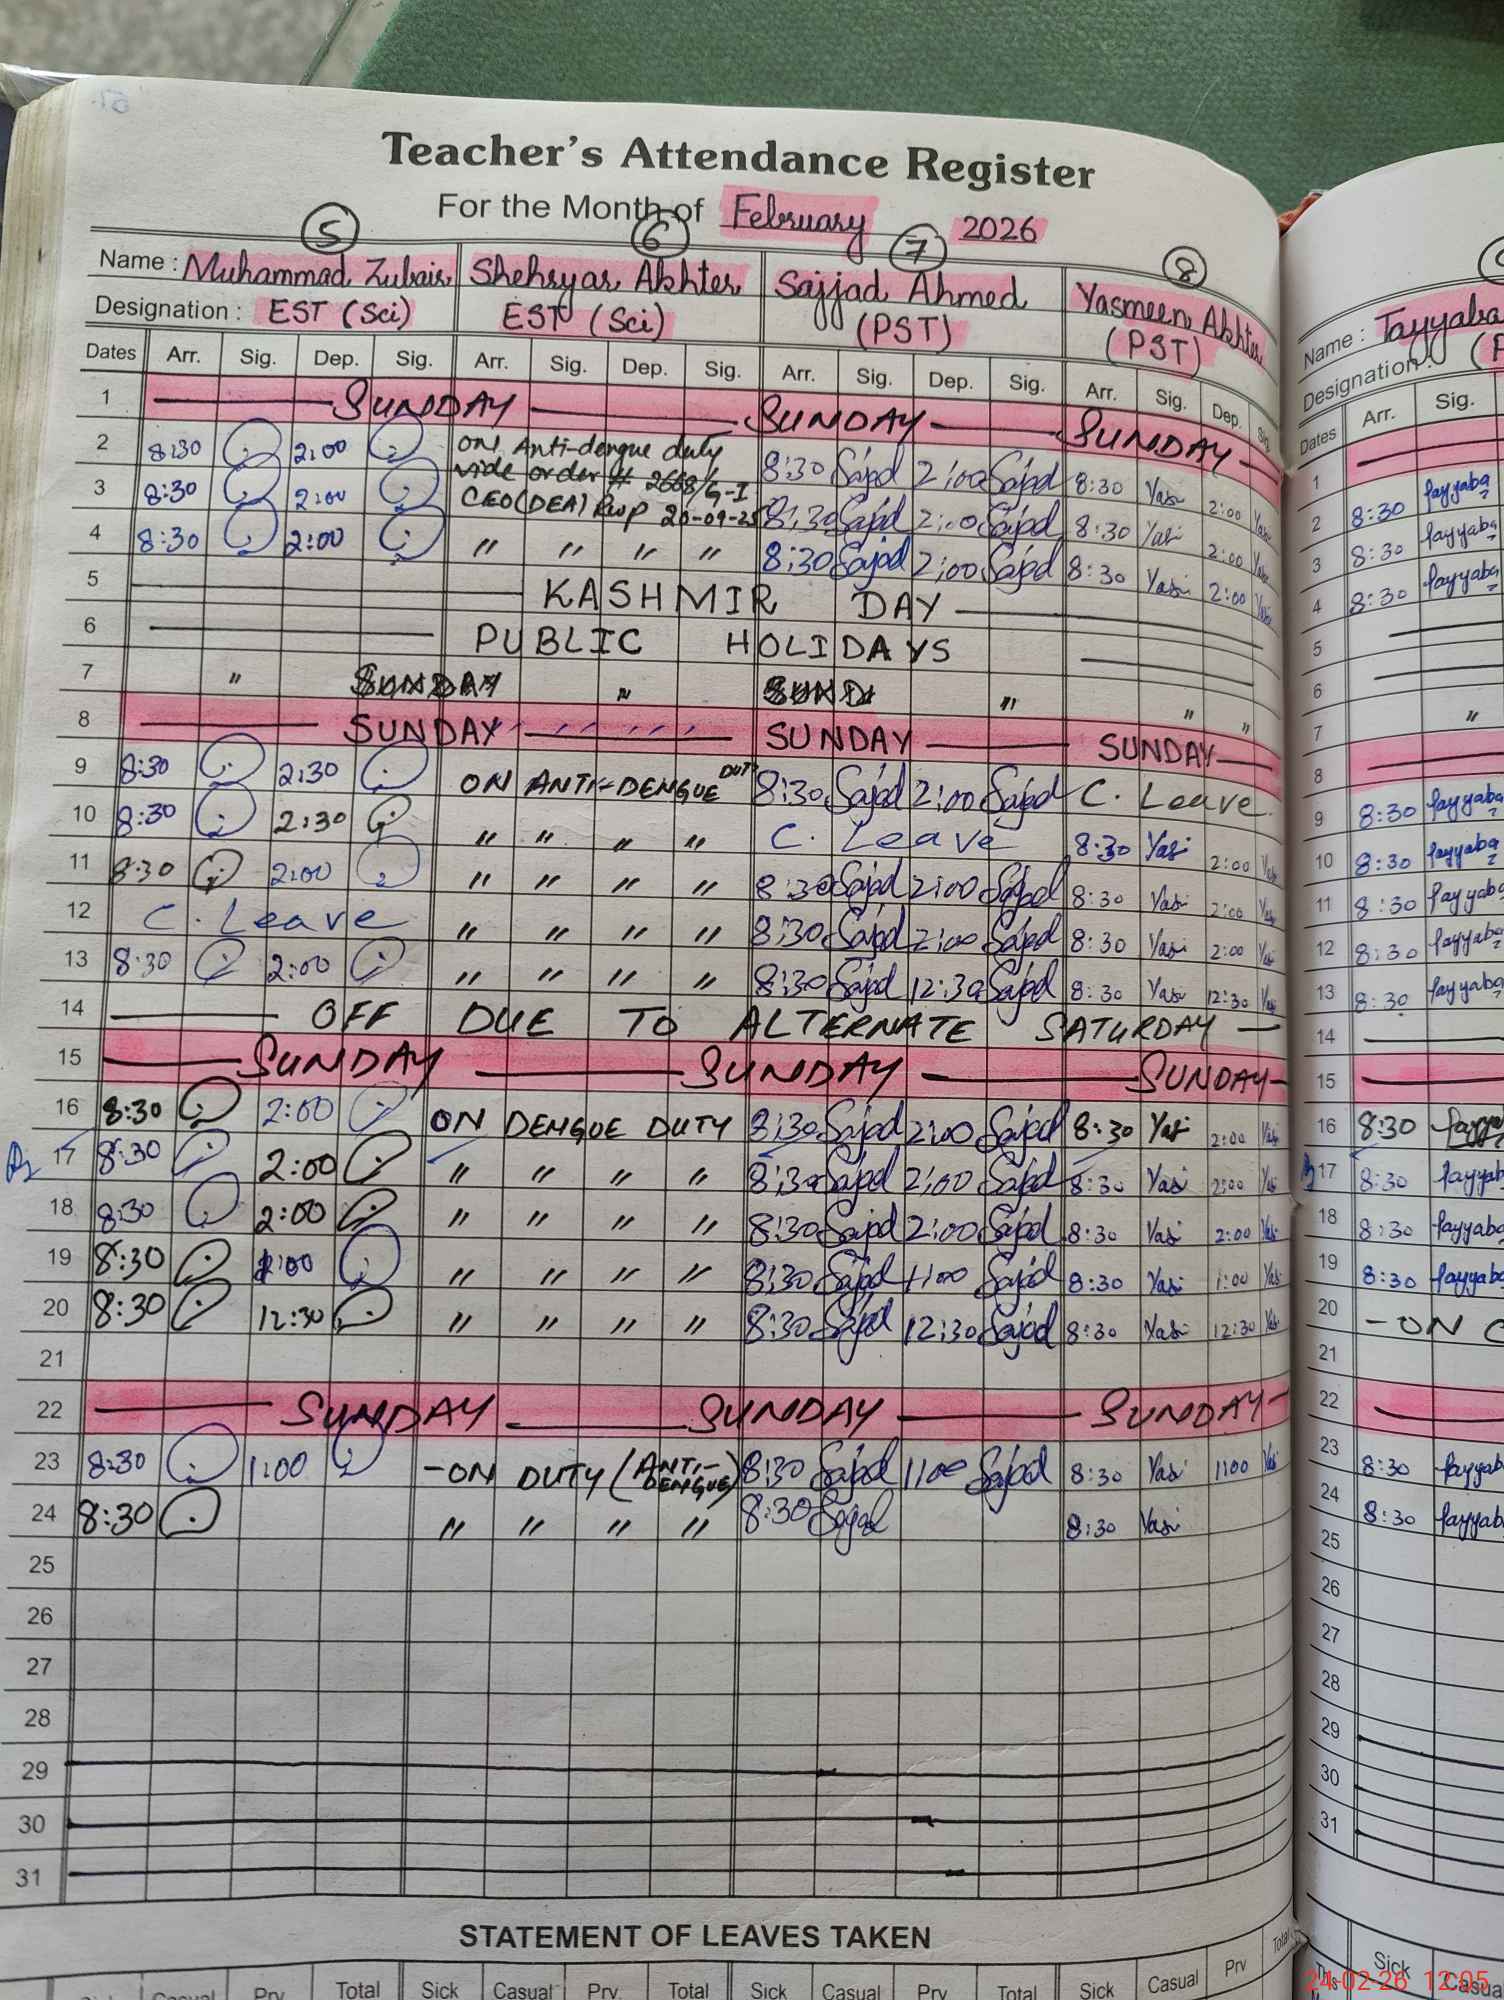 Teacher's Attendance Register
For the Month of February 2026
5 6 7 8
Name : Muhammad Zubair Shehryar Akhter Sajjad Ahmed Yasmeen Akhter
Designation : EST (Sci) EST (Sci) (PST) (PST)
Dates Arr. Sig. Dep. Sig. Arr. Sig. Dep. Sig. Arr. Sig. Dep. Sig. Arr. Sig. Dep. Sig.
1 SUNDAY SUNDAY SUNDAY
2 8:30 2:00 ON Anti-dengue duty 8:30 Sajad 2:00 Sajad 8:30 Yasi 2:00 Yasi
vide order # 2668/G-I
3 8:30 2:00 CEO(DEA) Rwp 20-09-25 8:30 Sajad 2:00 Sajad 8:30 Yasi 2:00 Yasi
4 8:30 2:00 " " " " 8:30 Sajad 2:00 Sajad 8:30 Yasi 2:00 Yasi
5 KASHMIR DAY
6 PUBLIC HOLIDAYS
7 " " " " "
8 SUNDAY SUNDAY SUNDAY
9 8:30 2:30 ON ANTI-DENGUE DUTY 8:30 Sajad 2:00 Sajad C. Leave
10 8:30 2:30 " " " " C. Leave 8:30 Yasi 2:00 Yasi
11 8:30 2:00 " " " " 8:30 Sajad 2:00 Sajad 8:30 Yasi 2:00 Yasi
12 C. Leave " " " " 8:30 Sajad 2:00 Sajad 8:30 Yasi 2:00 Yasi
13 8:30 2:00 " " " " 8:30 Sajad 12:30 Sajad 8:30 Yasi 12:30 Yasi
14 OFF DUE TO ALTERNATE SATURDAY
15 SUNDAY SUNDAY SUNDAY
16 8:30 2:00 ON DENGUE DUTY 8:30 Sajad 2:00 Sajad 8:30 Yasi 2:00 Yasi
17 8:30 2:00 " " " " 8:30 Sajad 2:00 Sajad 8:30 Yasi 2:00 Yasi
18 8:30 2:00 " " " " 8:30 Sajad 2:00 Sajad 8:30 Yasi 2:00 Yasi
19 8:30 1:00 " " " " 8:30 Sajad 1:00 Sajad 8:30 Yasi 1:00 Yasi
20 8:30 12:30 " " " " 8:30 Sajad 12:30 Sajad 8:30 Yasi 12:30 Yasi
21
22 SUNDAY SUNDAY SUNDAY
23 8:30 1:00 -ON DUTY (ANTI-DENGUE) 8:30 Sajad 1:00 Sajad 8:30 Yasi 1:00 Yasi
24 8:30 " " " " 8:30 Sajad 8:30 Yasi
25
26
27
28
29
30
31
STATEMENT OF LEAVES TAKEN
Casual Prv Total Sick Casual Prv. Total Sick Casual Prv Total Sick Casual Prv Total
Name : Tayyaba
Designation :
Dates Arr. Sig.
1
2 8:30 Tayyaba
3 8:30 Tayyaba
4 8:30 Tayyaba
5
6
7 "
8
9 8:30 Tayyaba
10 8:30 Tayyaba
11 8:30 Tayyaba
12 8:30 Tayyaba
13 8:30 Tayyaba
14
15
16 8:30
17 8:30 Tayyab
18 8:30 Tayyaba
19 8:30 Tayyaba
20 -ON C
21
22
23 8:30 Tayyab
24 8:30 Tayyab
25
26
27
28
29
30
31
Sick Casual
24-02-26 12:05